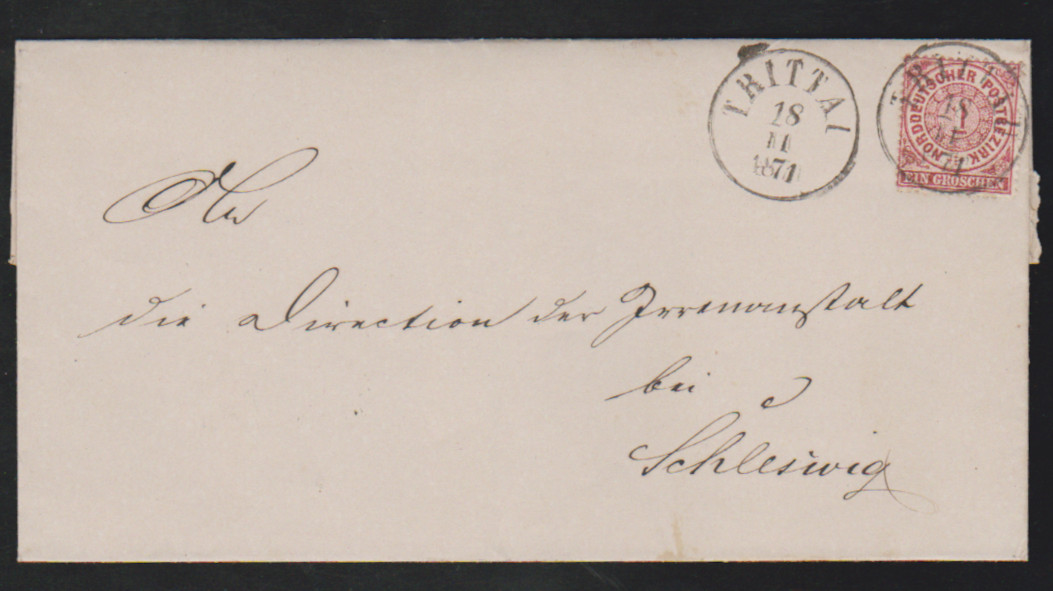 TRITTAU
18
11
1871
TRITTAU
18
11
71
NORDDEUTSCHER POSTBEZIRK
1
EIN GROSCHEN
An
die Direction der Irrenanstalt
bei
Schleswig